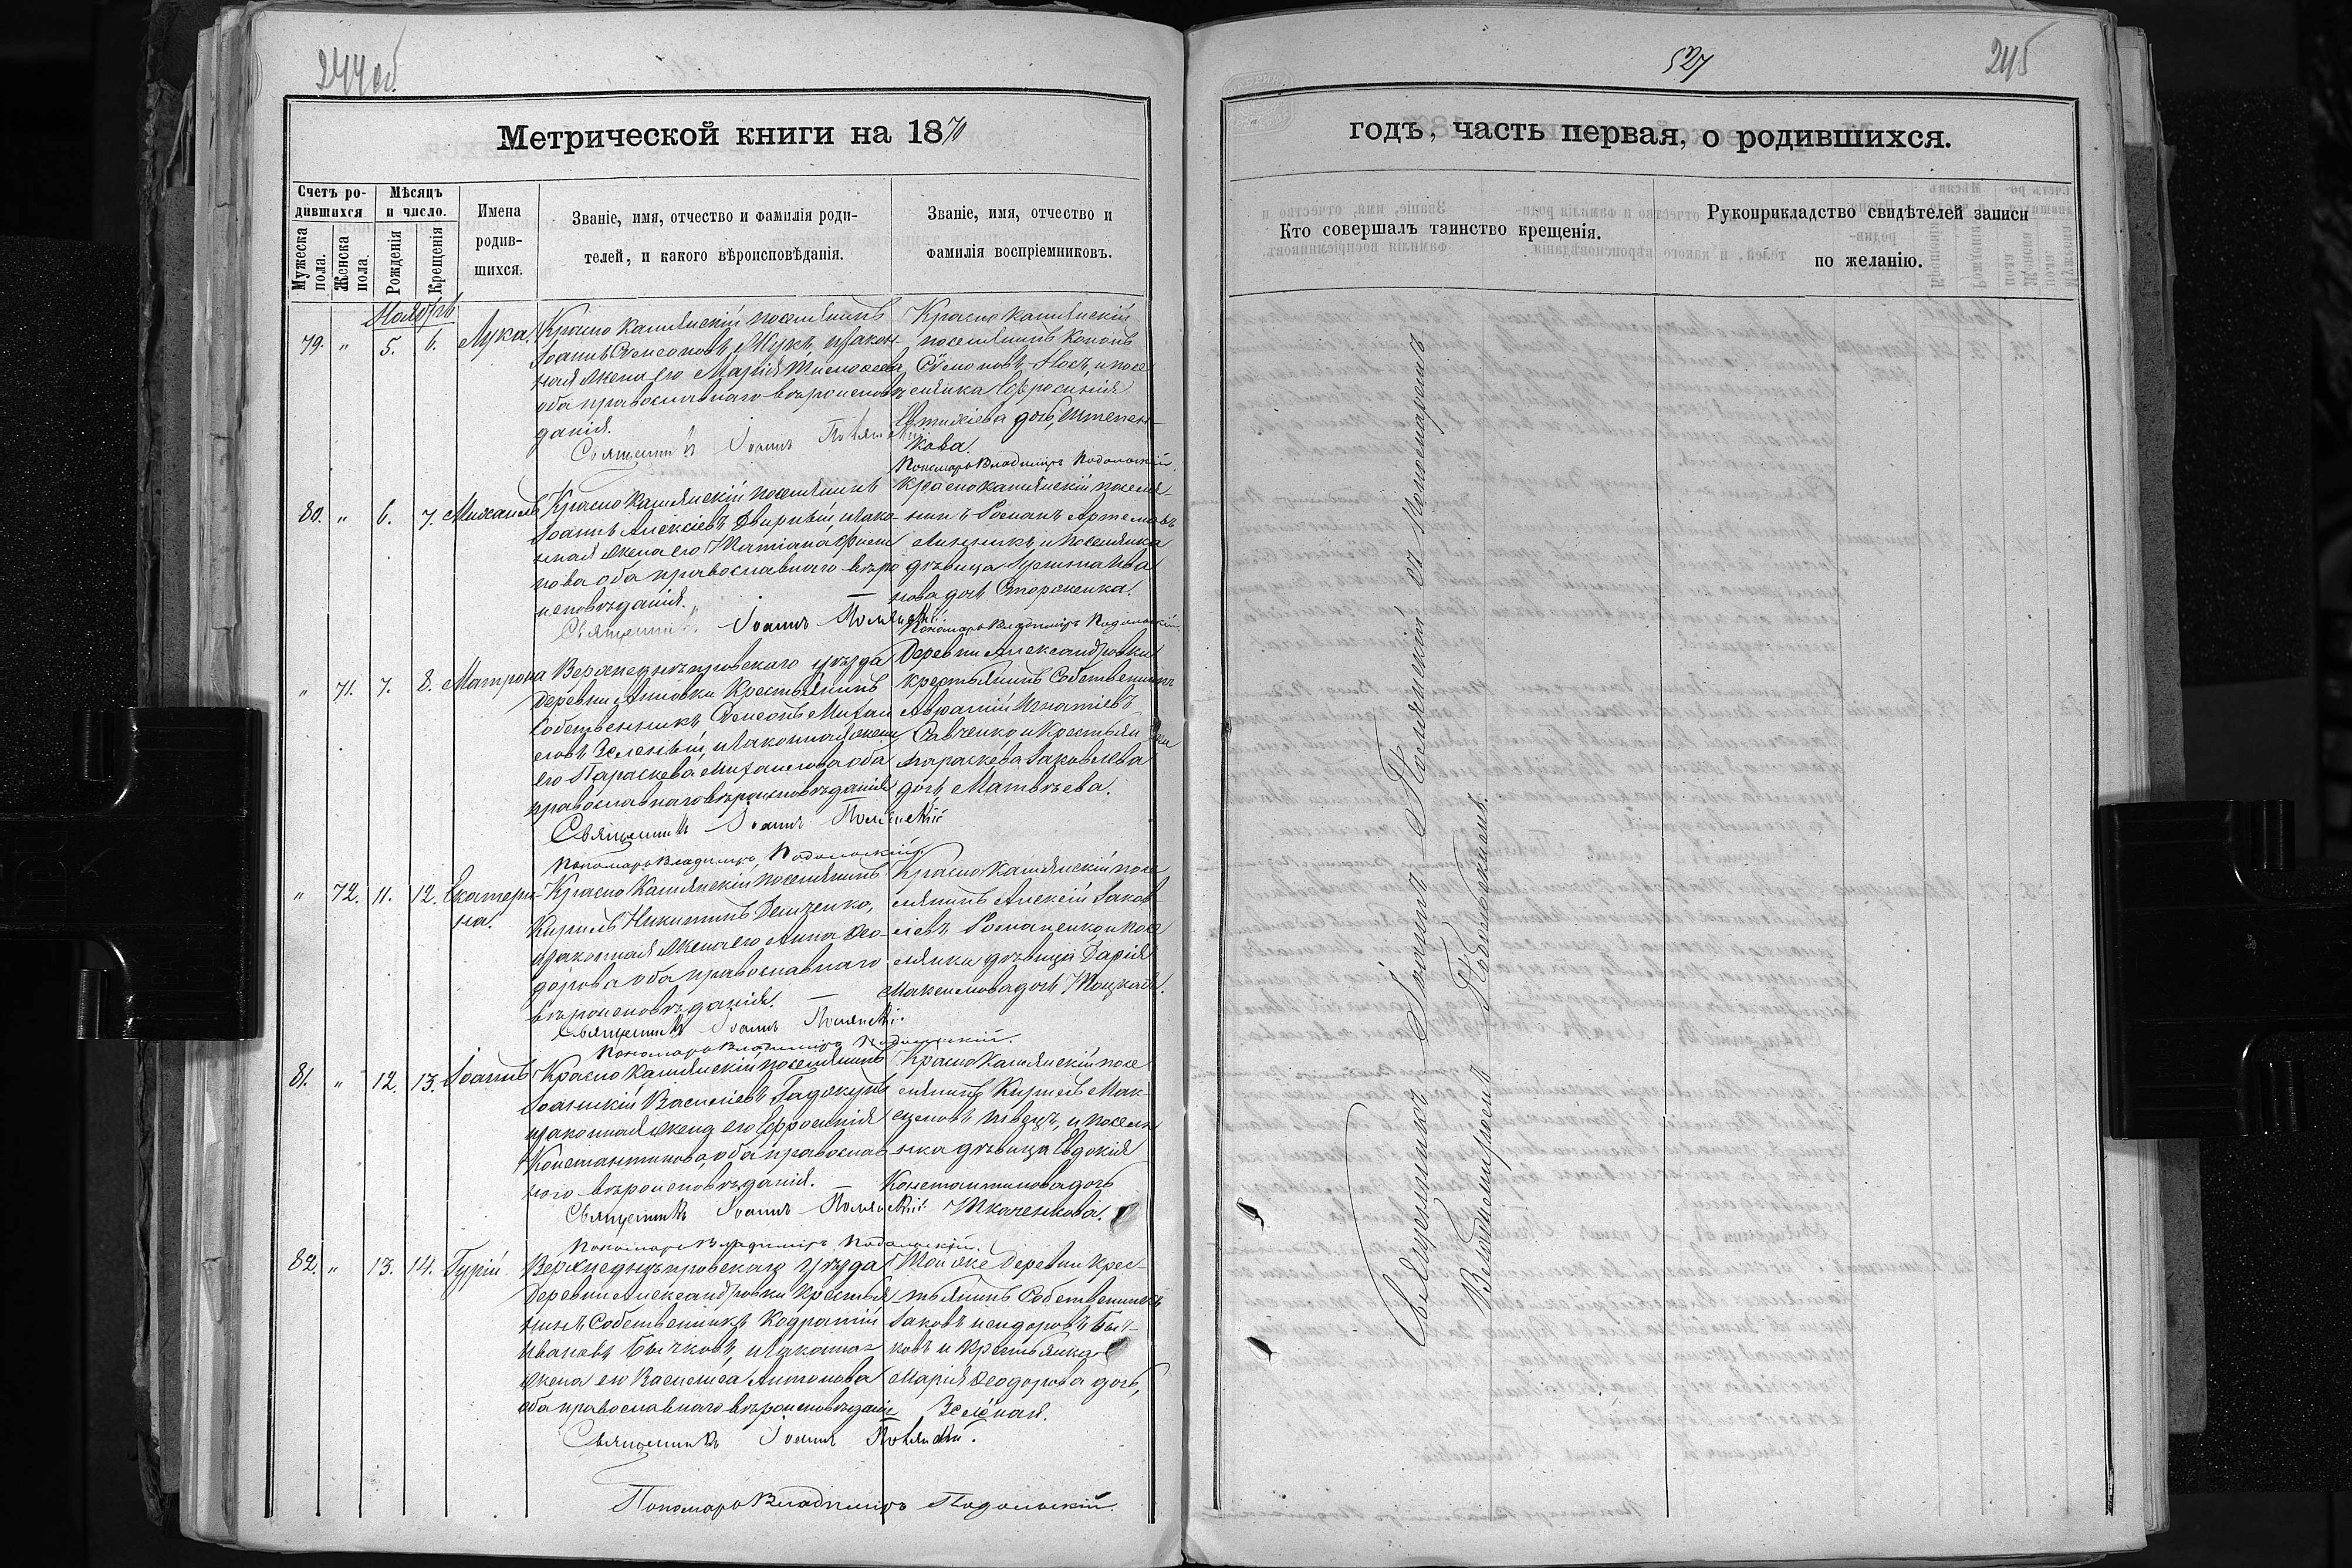 244об.
Метрической книги на 1870
Счетъ ро-
дившихся
Мѣсяцъ
и число.
Мужеска
пола.
Женска
пола.
Рожденія
Крещенія
Имена
родив-
шихся.
Званіе, имя, отчество и фамилія роди-
телей, и какого вѣроисповѣданія.
Званіе, имя, отчество и
фамилія воспріемниковъ.
Ноябрь
79. " 5. 6. Лука.
Красно Камянскій поселянинъ
Іоаннъ Семеоновъ Жукъ, и закон
ная жена его Марія Тимоѳеева
оба православнаго вѣроисповѣ
данія.
Священникъ Іоаннъ
Красно Камянскій
поселянинъ Кононъ
Семоновъ Носъ, и посе
селянка Ефросинія
Евтихіева дочь, Штепен-
кова.
Пономарь Владиміръ Подольскій.
80. " 6. 7. Михаилъ
Красно Камянскій поселянинъ
Іоаннъ Алексіевъ Двирный, и зако-
нная жена его Татіана
пова оба православнаго вѣро
исповѣданія.
Священникъ Іоаннъ
Краснокамянскій поселя-
нинъ Романъ Артемовъ
Линникъ, и поселянка
дѣвица Ива
нова дочь Стороженка.
Пономарь Владиміръ Подольскій.
" 71. 7. 8. Матрона
Верхнеднѣпровскаго уѣзда
деревни Анновки Крестьянинъ
Собственникъ Семеонъ Михаи
ловъ Зеленый, и законная жена
его Параскева Михаилова оба
православнаго вѣроисповѣданія
Священникъ Іоаннъ
Пономарь Владиміръ Подольскій.
Деревни Александровки
крестьянинъ Собственникъ
Аврамій Игнатіевъ
Савченко, и Крестьянка
Параскева Іаковлева
дочь Матвѣева.
" 72. 11. 12. Екатери-
на.
Красно Камянскій поселянинъ
Кирилъ Никитинъ Демченко,
и законная жена его Анна Ѳео-
дорова оба православнаго
вѣроисповѣданія.
Священникъ Іоаннъ
Пономарь Владиміръ Подольскій.
Красно Камянскій посе
лянинъ Алексій Іаков-
левъ Романенко, и посе
лянка дѣвица Дарія
Максимова дочь Тоцкая.
81. " 12. 13. Іоаннъ
Красно Камянскій поселянинъ
Іоанникій Василіевъ
и законная жена его Ефросинія
Константинова, оба православ
наго вѣроисповѣданія.
Священникъ Іоаннъ
Пономарь Владиміръ Подольскій.
Красно Камянскій посе
лянинъ Кирилъ Мак-
симовъ Швецъ, и поселя
нка дѣвица Евдокія
Константинова дочь
Ткаченкова.
82. " 13. 14. Гурій
Верхнеднѣпровскаго уѣзда
деревни Александровки Крестья
нинъ Собственникъ Кодратій
Ивановъ Бычковъ, и законная
жена его Василиса Антонова
оба православнаго вѣроисповѣданія
Священникъ Іоаннъ
Пономарь Владиміръ Подольскій.
Той же деревни Крес-
тьянинъ Собственникъ
Іаковъ Исидоровъ Быч-
ковъ и Крестьянка
Марія Ѳеодорова дочь,
Зеленая.
527
245
годъ, часть первая, о родившихся.
Кто совершалъ таинство крещенія.
Рукоприкладство свидѣтелей записи
по желанію.
Священникъ Іоаннъ съ Пономаремъ